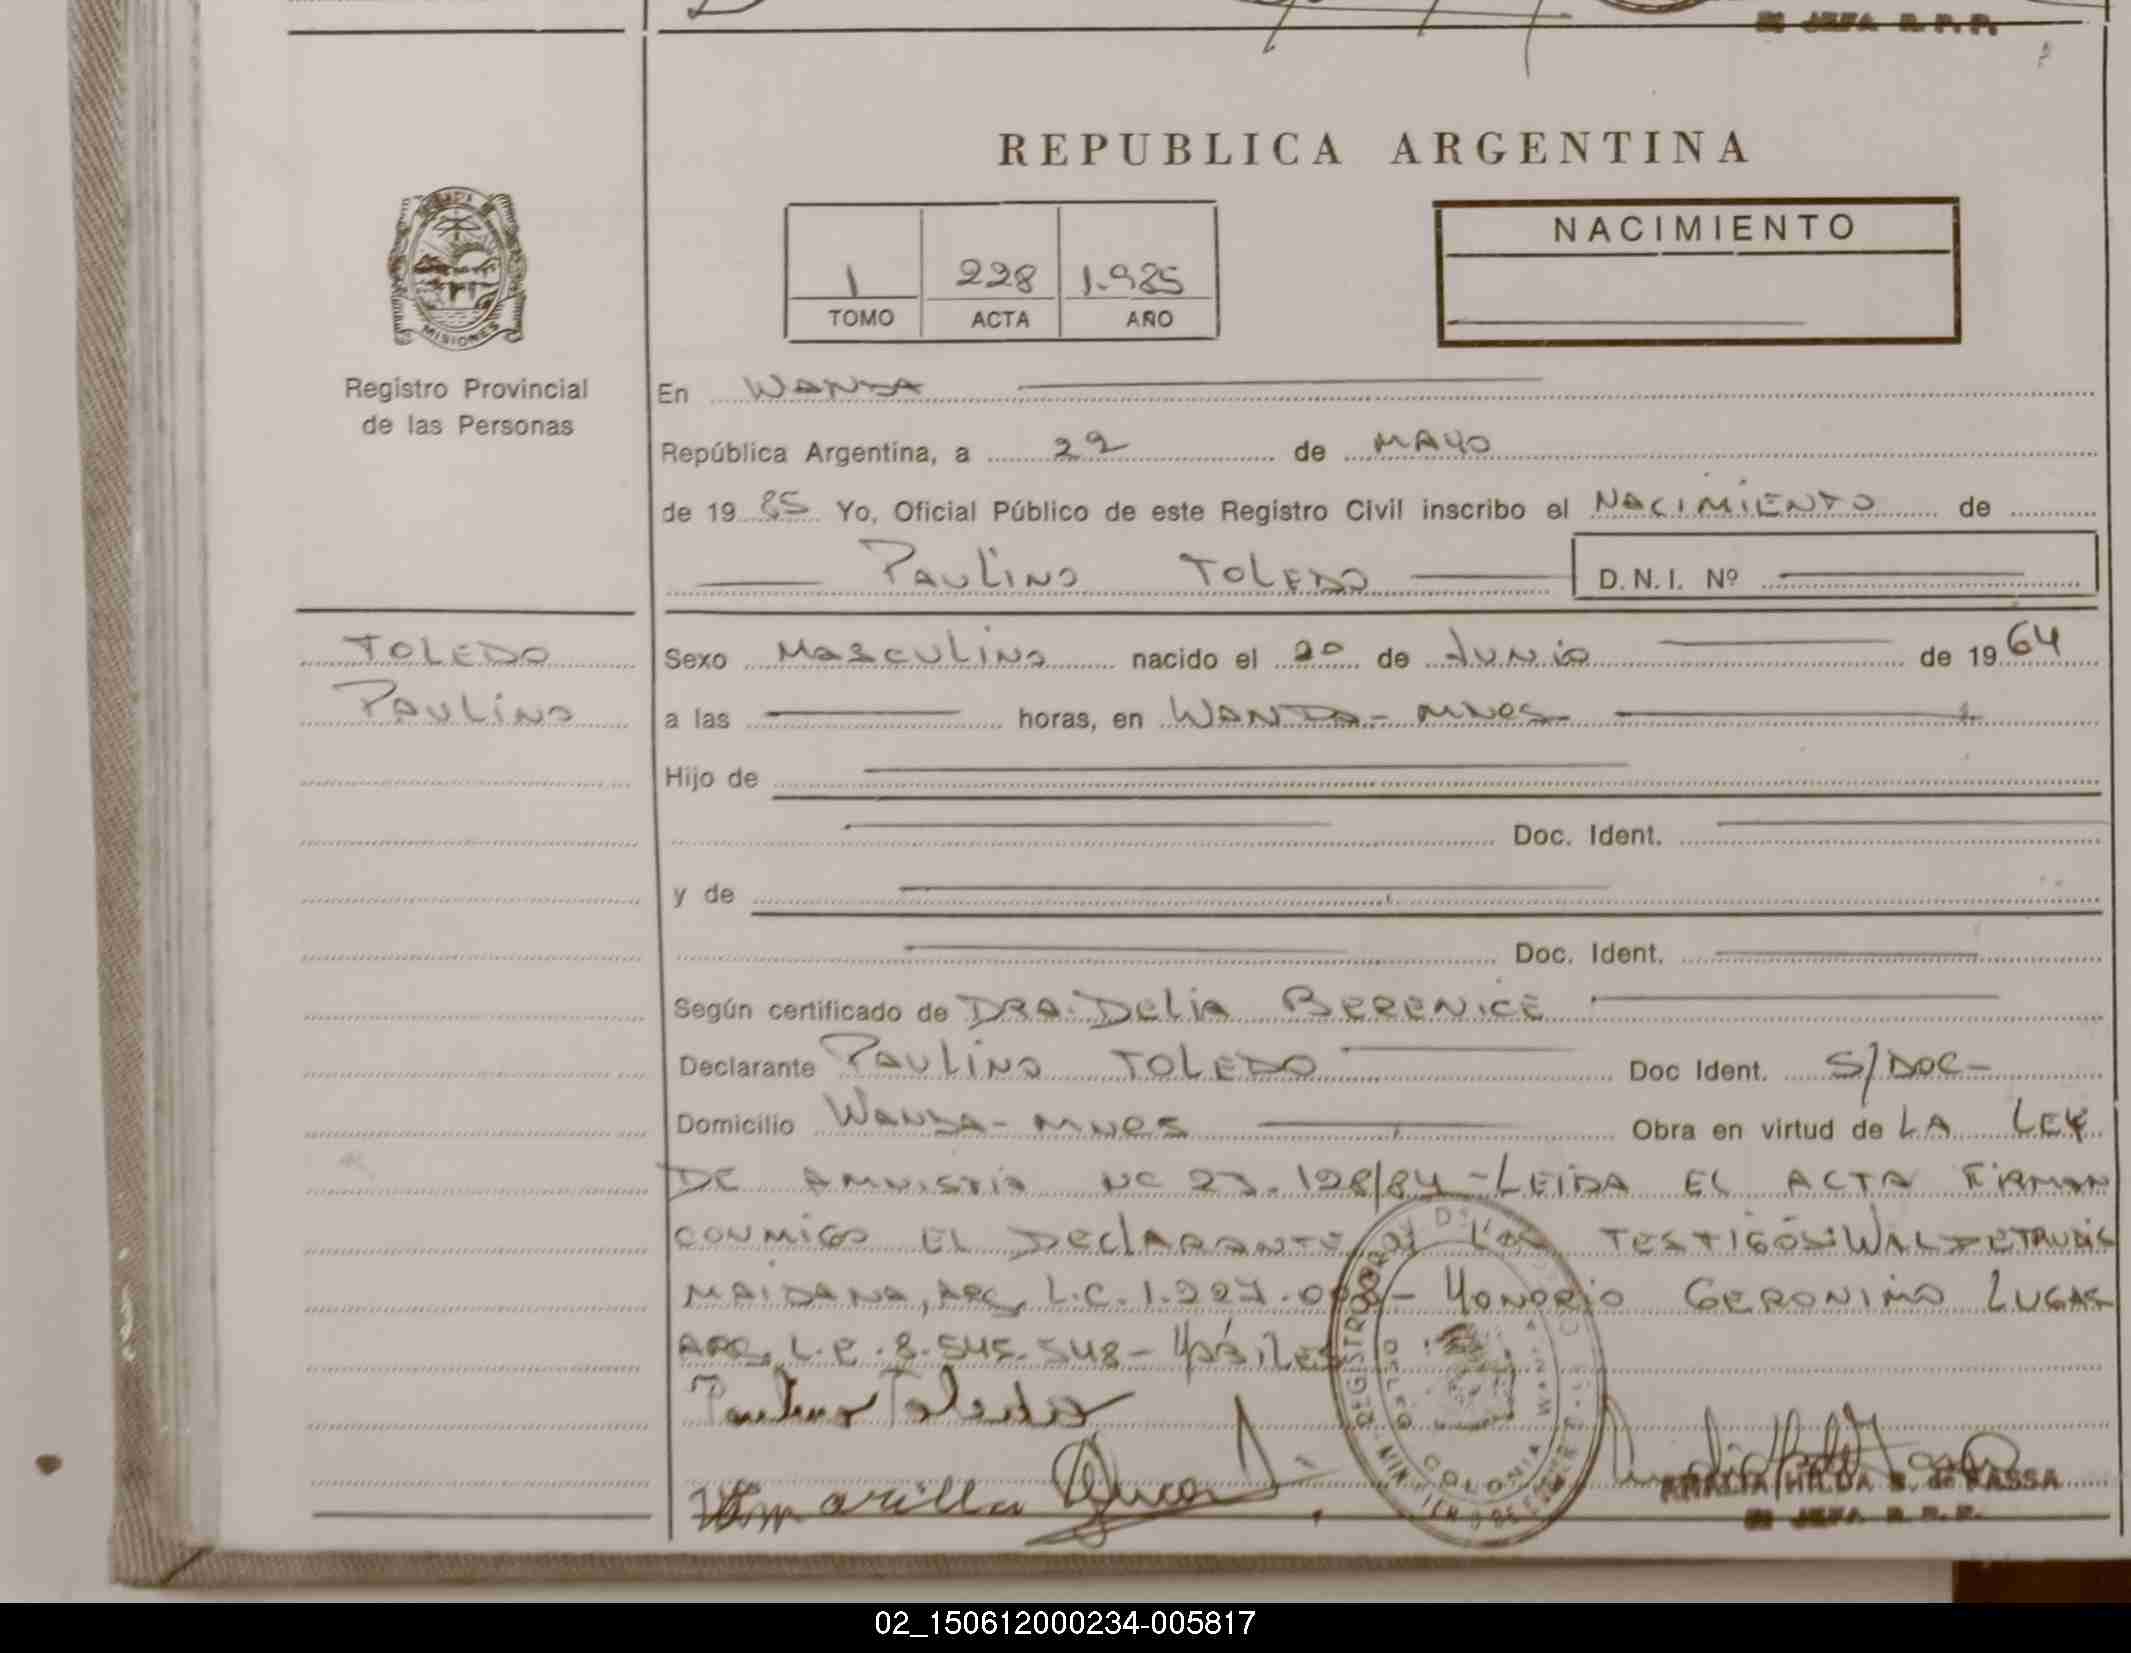 JEFA R. P. P.
REPUBLICA ARGENTINA
MISIONES
1 228 1.985
TOMO ACTA AÑO
NACIMIENTO
Registro Provincial
de las Personas
En WANDA
República Argentina, a 22 de MAYO
de 19 85 Yo, Oficial Público de este Registro Civil inscribo el NACIMIENTO de
PAULINO TOLEDO D.N.I. Nº
TOLEDO
PAULINO
Sexo MASCULINO nacido el 20 de JUNIO de 19 64
a las horas, en WANDA - MNES
Hijo de
Doc. Ident.
y de
Doc. Ident.
Según certificado de DRA. DELIA BERENICE
Declarante PAULINO TOLEDO Doc Ident. S/DOC-
Domicilio WANDA - MNES Obra en virtud de LA LEY
DE AMNISTIA NC 23.128/84 - LEIDA EL ACTA FIRMAN
CONMIGO EL DECLARANTE Y LOS TESTIGOS: WALDETRUDIS
MAIDANA, ARG, L.C. 1.227. - HONORIO GERONIMO LUGAS
ARG, L.E. 8.545.548 - HÁBILES
Paulino Toledo
AMALIA HILDA B. de RASSA
JEFA R. P. P.
COLONIA
02_150612000234-005817